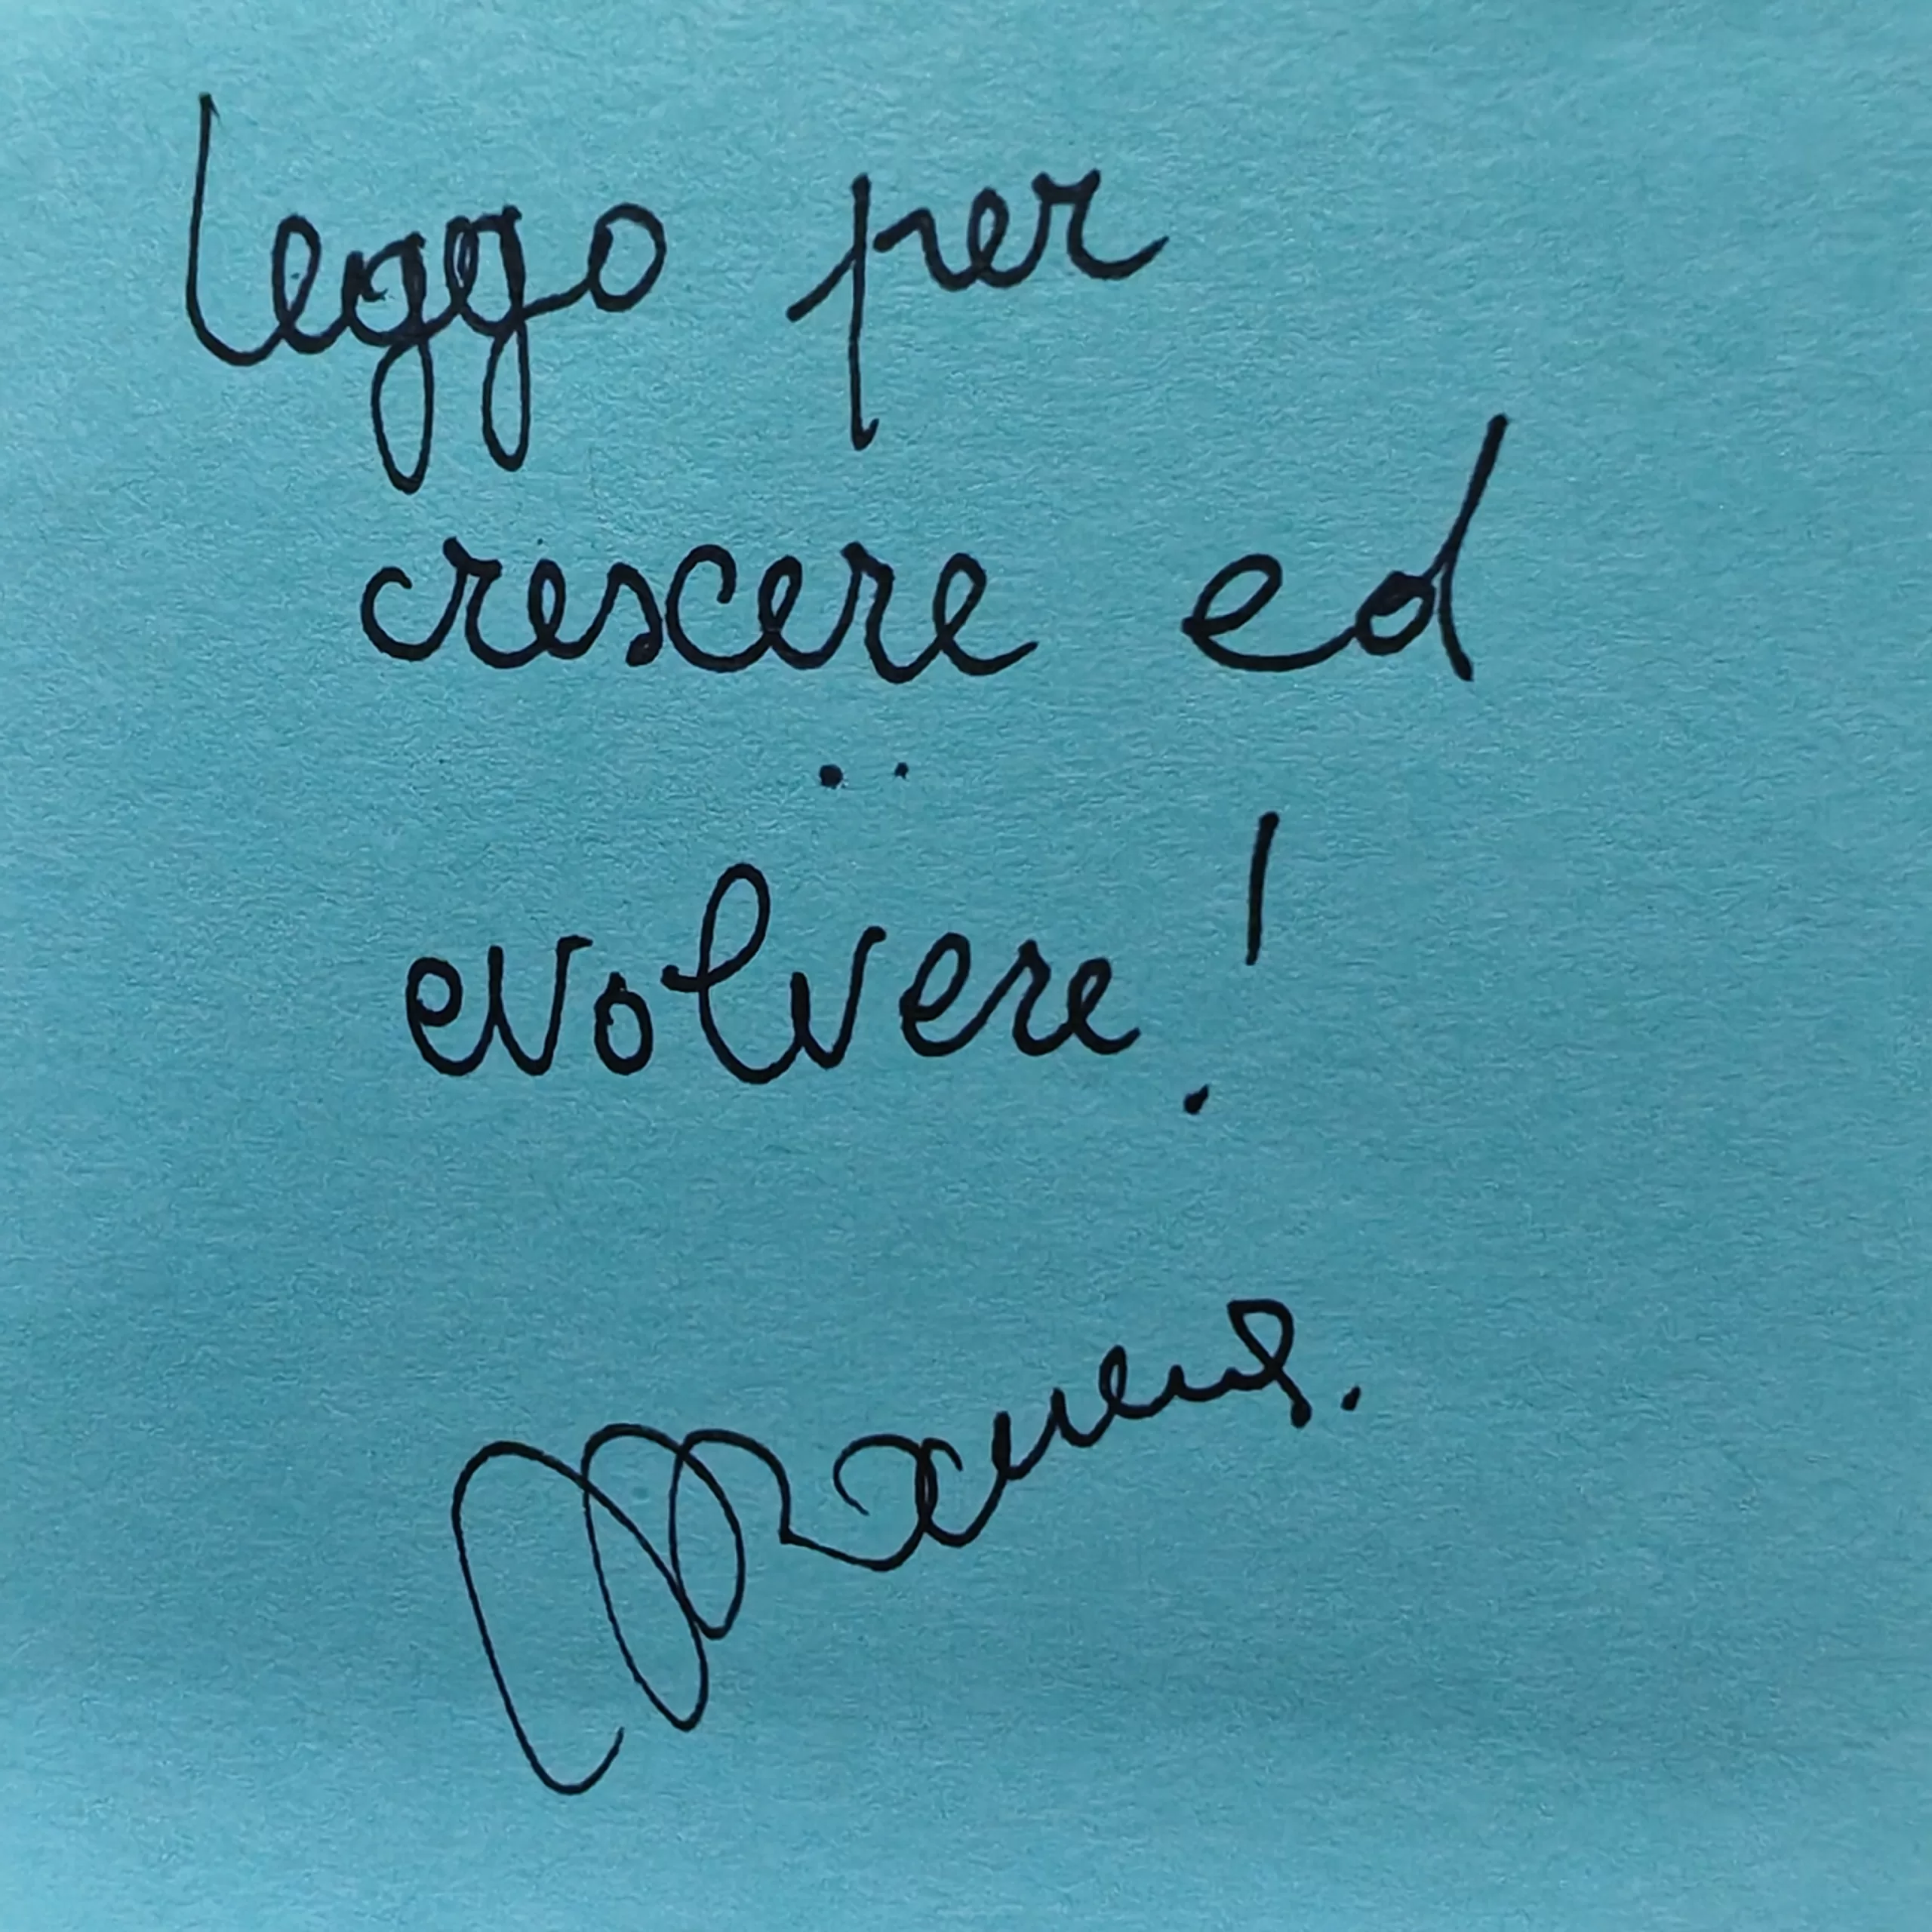 leggo per
crescere ed
evolvere!